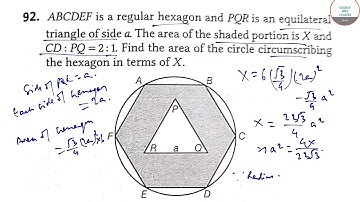 92. ABCDEF is a regular hexagon and PQR is an equilateral
triangle of side a. The area of the shaded portion is X and
CD : PQ = 2 : 1. Find the area of the circle circumscribing
the hexagon in terms of X.
Side of PQR = a.
Each side of hexagon
= 2a.
Area of hexagon
= √3/4 (2a)² × 6
A B
P
F R a Q C
E D
X = 6(√3/4)(2a)²
- √3/4 a²
X = 23√3/4 a²
⇒ a² = 4X/23√3
∵ Radius